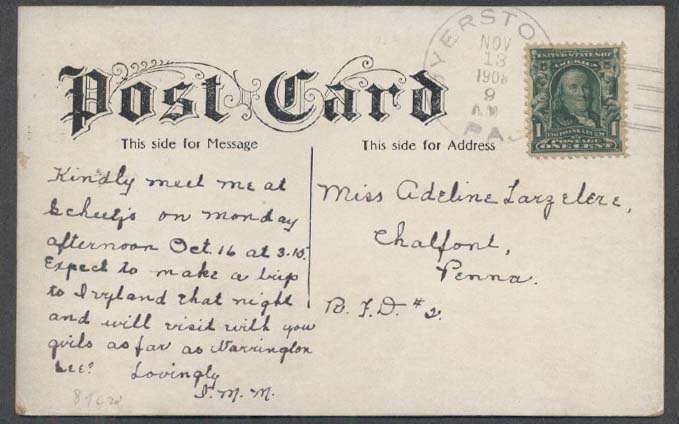 Post Card
This side for Message
This side for Address
YERSTO
NOV
13
190
9
AM
PA
UNITED STATES OF
AMERICA
1 1
POSTAGE
ONE CENT
Kindly meet me at
on monday
afternoon Oct. 16 at 3.15.
Expect to make a trip
to Ivyland that night
and will visit with you
as far as Warrington
see? Lovingly
M. M.
Miss Adeline Larzelere,
Chalfont,
Penna.
R. F. D. #2.